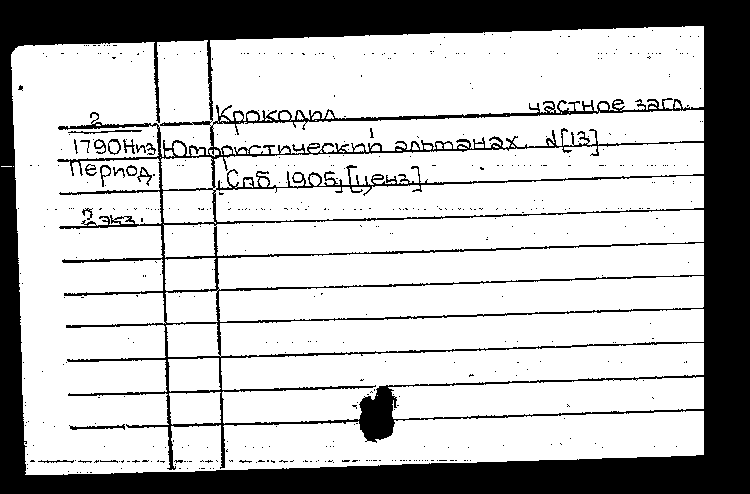 2 Крокодил частное загл.
1790Низ Юмористический альманах. N[13]
Период Спб, 1905, [ценз.].
2 экз.